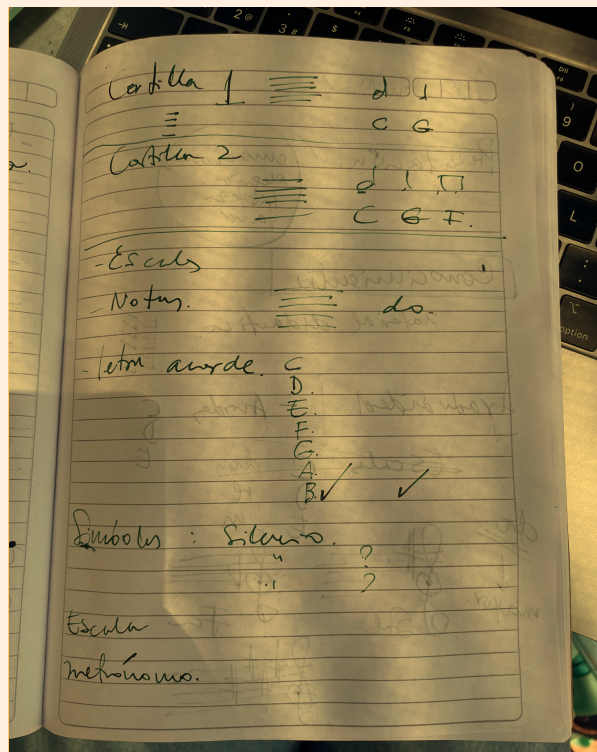 Cartilla 1 d 1
C G
Cartilla 2
C G F.
- Escala
- Notas. do.
- letra acorde. C
D.
E.
F.
G.
A.
B. ✓ ✓
Símbolos : Silencio.
" ?
" ?
Escala
metrónomo.